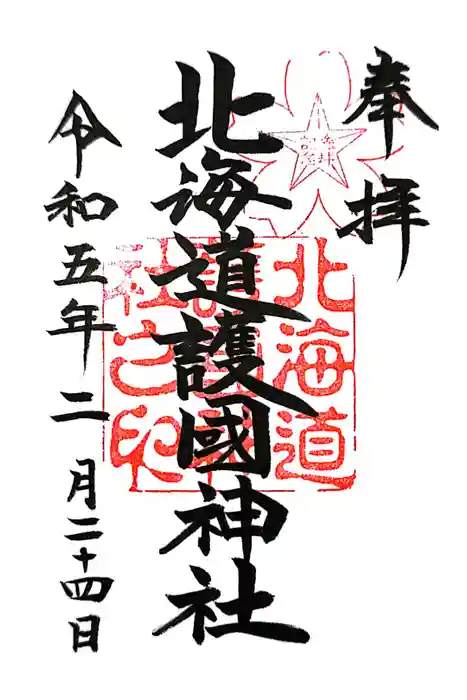 奉拝
北海道
護國神
社之印
北海道護國神社
令和五年二月二十四日